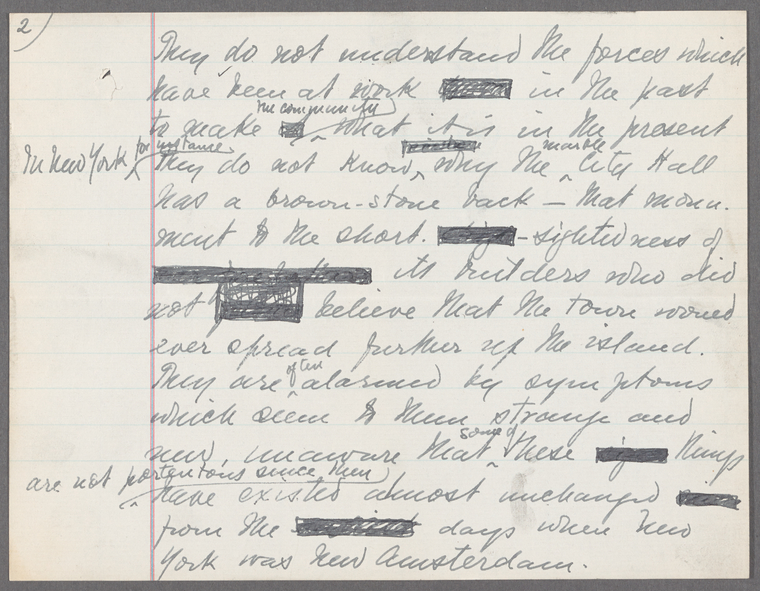 2
They do not understand the forces which
have been at work in the past
the community
to make what it is in the present
for instance
marble
In New York They do not know, why the City Hall
has a brown-stone back – that monu-
ment to the short-sightedness of
its builders who did
not believe that the town would
ever spread further up the island.
often
They are alarmed by symptoms
which seem to them strange and
some of
new, unaware that these things
are not portentous since they
have existed almost unchanged
from the days when New
York was New Amsterdam.